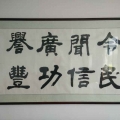 令聞廣譽
民信功豐